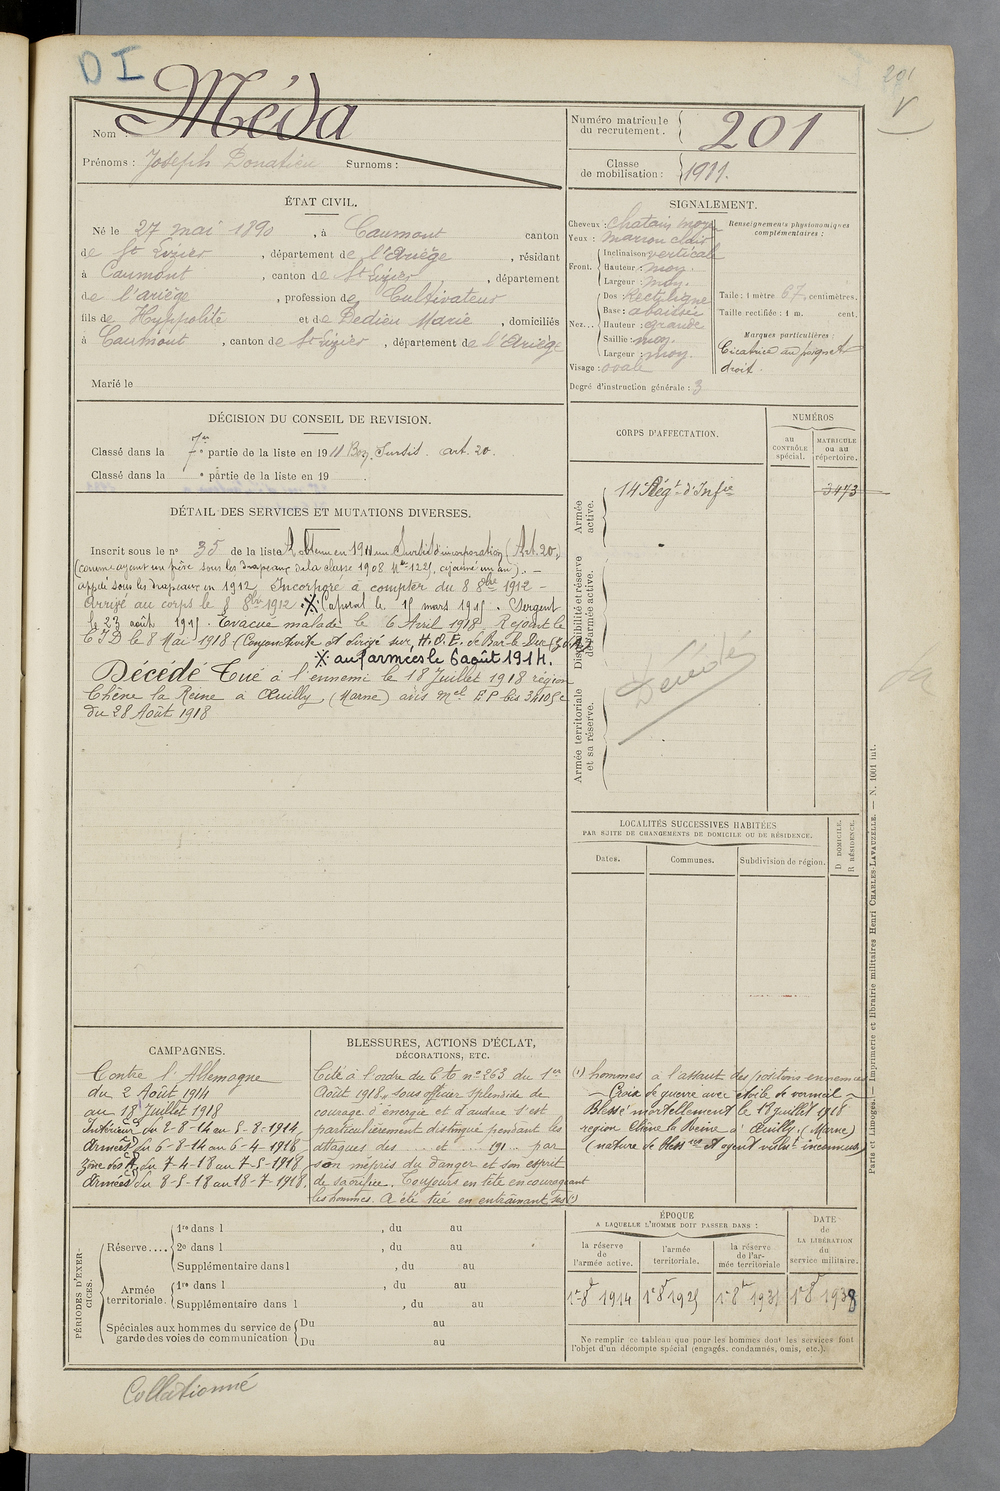 D I
201
V
Nom : Méda
Prénoms : Joseph Donatien Surnoms :
Numéro matricule du recrutement. 201
Classe de mobilisation : 1911.
ÉTAT CIVIL.
Né le 27 mai 1890, à Caumont canton
de St Lizier, département de l'Ariège, résidant
à Caumont, canton de St Lizier, département
de l'ariège, profession de Cultivateur
fils de Hyppolite et de Dedieu Marie, domiciliés
à Caumont, canton de St Lizier, département de l'Ariège
Marié le
SIGNALEMENT.
Cheveux : chatain moyen
Yeux : marron clair
Front. Inclinaison verticale
Hauteur : moy.
Largeur : moy.
Nez... Dos Rectiligne
Base : abaissée
Hauteur : grande
Saillie : moy.
Largeur : moy.
Visage : ovale
Degré d'instruction générale : 3
Renseignements physionomiques complémentaires :
Taille : 1 mètre 67 centimètres.
Taille rectifiée : 1 m. cent.
Marques particulières :
Cicatrice au poignet
droit.
DÉCISION DU CONSEIL DE REVISION.
Classé dans la 1re partie de la liste en 1911 Bon, Sursis. art. 20.
Classé dans la e partie de la liste en 19 .
DÉTAIL DES SERVICES ET MUTATIONS DIVERSES.
Inscrit sous le no 35 de la liste A obtenu en 1911 un Sursis d'incorporation (Art. 20,
(comme ayant un frère sous les drapeaux de la classe 1908 Mle 1225, ajourné un an). -
appelé sous les drapeaux en 1912 Incorporé à compter du 8 8bre 1912 -
Arrivé au corps le 8 8bre 1912 ※ Caporal le 15 mars 1915. Sergent
le 23 août 1915. Evacué malade le 6 Avril 1918 Rejoint le
C I D le 8 Mai 1918 (Conjonctivite et dirigé sur H.O.E. de Bar-le-Duc
※ aux armées le 6 août 1914.
Décédé Tué à l'ennemi le 18 Juillet 1918 région
Chêne la Reine à Œuilly (Marne) avis mel E.P bis 34105e
du 28 Août 1918
CORPS D'AFFECTATION.
NUMÉROS
au CONTRÔLE spécial.
MATRICULE ou au répertoire.
Armée active.
14e Régt d'Infie
3473
Disponibilité et réserve de l'armée active.
Décédé
Armée territoriale et sa réserve.
LOCALITÉS SUCCESSIVES HABITÉES
PAR SUITE DE CHANGEMENTS DE DOMICILE OU DE RÉSIDENCE.
Dates.
Communes.
Subdivision de région.
D DOMICILE.
R RÉSIDENCE.
CAMPAGNES.
Contre l'Allemagne
du 2 Août 1914
au 18 Juillet 1918
Intérieur du 2-8-14 au 5-8-1914
Armées du 6-8-14 au 6-4-1918
Zone des A. du 7-4-18 au 7-5-1918
Armées du 8-5-18 au 18-7-1918.
BLESSURES, ACTIONS D'ÉCLAT,
DÉCORATIONS, ETC.
Cité à l'ordre du no 263 du 1er
Août 1918, sous officier splendide de
courage d'énergie et d'audace s'est
particulièrement distingué pendant les
attaques des ... et ... 191 ... par
son mépris du danger et son esprit
de sacrifice. Toujours en tête encourageant
les hommes. A été tué en entraînant ses (1)
(1) hommes à l'assaut des positions ennemies
- Croix de guerre avec étoile de vermeil -
Blessé mortellement le 18 juillet 1918
région Chêne la Reine à Œuilly (Marne)
(nature de blessres et agent vulnt inconnus)
PÉRIODES D'EXERCICES.
Réserve.... 1re dans l , du au
2e dans l , du au
Supplémentaire dans l , du au
Armée territoriale. 1re dans l , du au
Supplémentaire dans l , du au
Spéciales aux hommes du service de garde des voies de communication Du au
Du au
ÉPOQUE
A LAQUELLE L'HOMME DOIT PASSER DANS :
la réserve de l'armée active.
l'armée territoriale.
la réserve de l'armée territoriale
DATE de LA LIBÉRATION du service militaire.
1er 8bre 1914
1er 8bre 1925
1er 8bre 1931
1er 8bre 1938
Ne remplir ce tableau que pour les hommes dont les services font
l'objet d'un décompte spécial (engagés, condamnés, omis, etc.).
Paris et Limoges. — Imprimerie et librairie militaires Henri CHARLES-LAVAUZELLE. — N. 1001 int.
Collationné